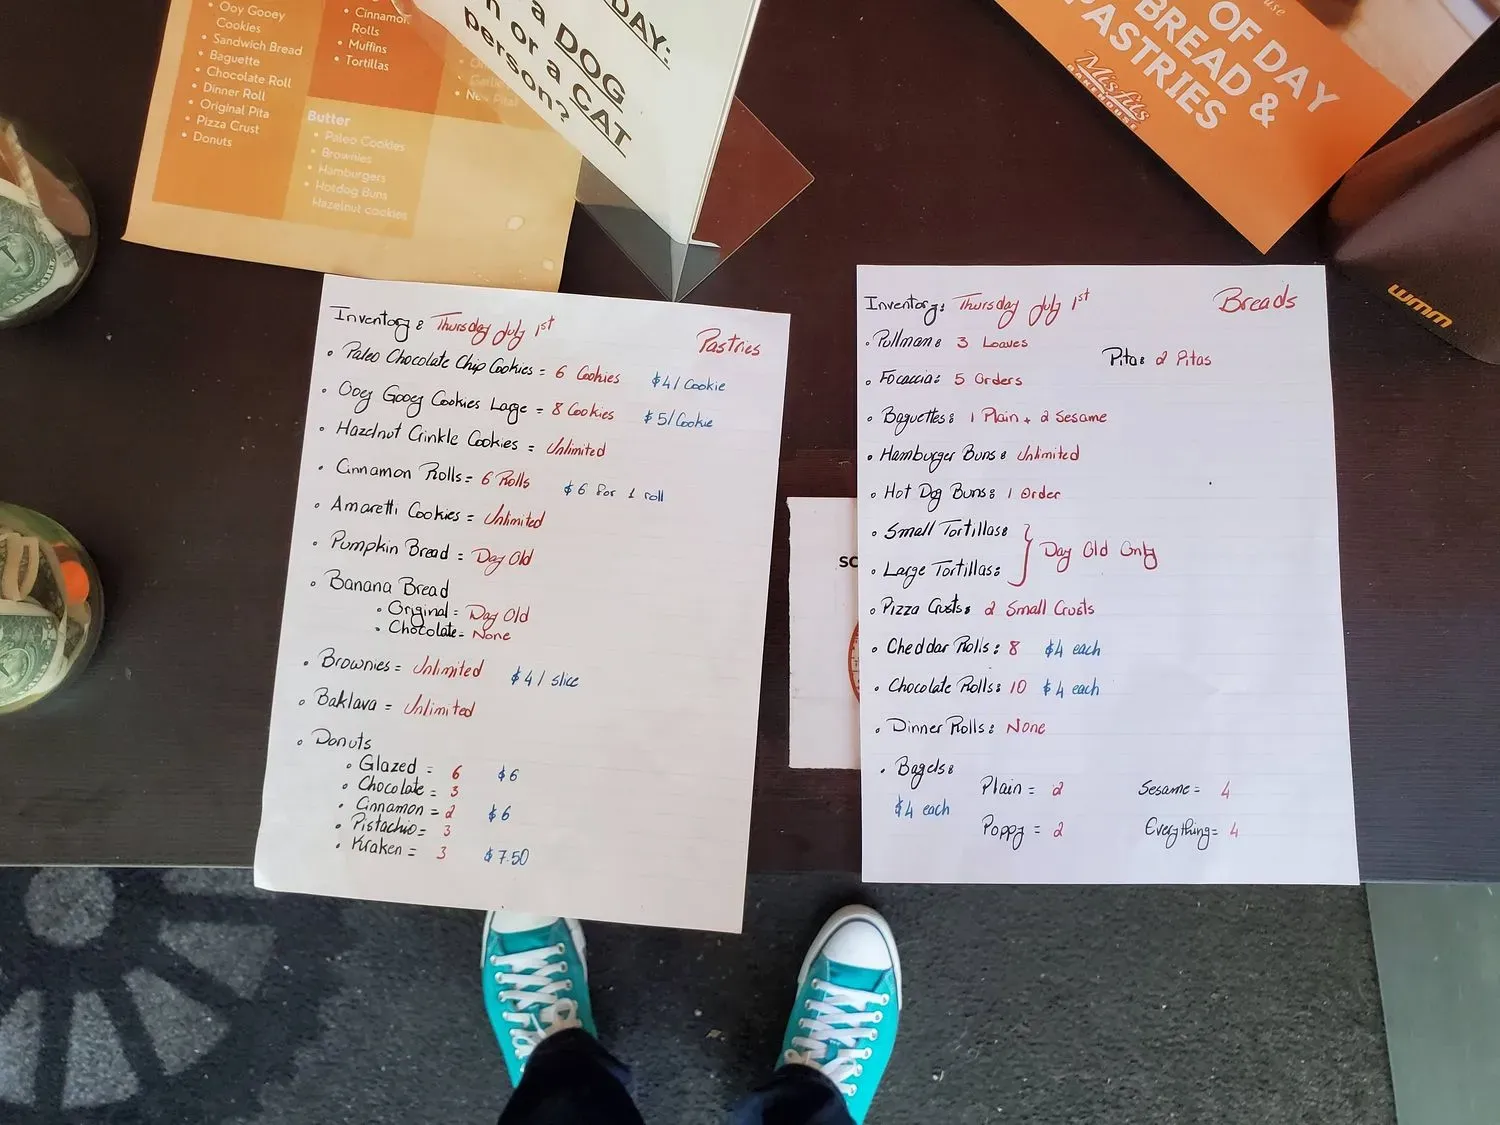 • Ooy Gooey
Cookies
• Sandwich Bread
• Baguette
• Chocolate Roll
• Dinner Roll
• Original Pita
• Pizza Crust
• Donuts
• Cinnamon
Rolls
• Muffins
• Tortillas
Butter
• Paleo Cookies
• Brownies
• Hamburgers
• Hotdog Buns
Hazelnut cookies
DAY:
a DOG
or a CAT
person?
OF DAY
BREAD &
PASTRIES
Misfits
BAKEHOUSE
wmm
Inventory: Thursday July 1st
Pastries
• Paleo Chocolate Chip Cookies = 6 Cookies $4/Cookie
• Ooey Gooey Cookies Large = 8 Cookies $5/Cookie
• Hazelnut Crinkle Cookies = Unlimited
• Cinnamon Rolls = 6 Rolls $6 for 1 roll
• Amaretti Cookies = Unlimited
• Pumpkin Bread = Day Old
• Banana Bread
• Original = Day Old
• Chocolate = None
• Brownies = Unlimited $4/slice
• Baklava = Unlimited
• Donuts
• Glazed = 6 $6
• Chocolate = 3
• Cinnamon = 2 $6
• Pistachio = 3
• Kraken = 3 $7.50
Inventory: Thursday July 1st
Breads
• Pullman: 3 Loaves
Pita: 2 Pitas
• Focaccia: 5 Orders
• Baguettes: 1 Plain + 2 Sesame
• Hamburger Buns: Unlimited
• Hot Dog Buns: 1 Order
• Small Tortillas:
• Large Tortillas:
Day Old Only
• Pizza Crusts: 2 Small Crusts
• Cheddar Rolls: 8 $4 each
• Chocolate Rolls: 10 $4 each
• Dinner Rolls: None
• Bagels:
$4 each
Plain = 2 Sesame = 4
Poppy = 2 Everything = 4